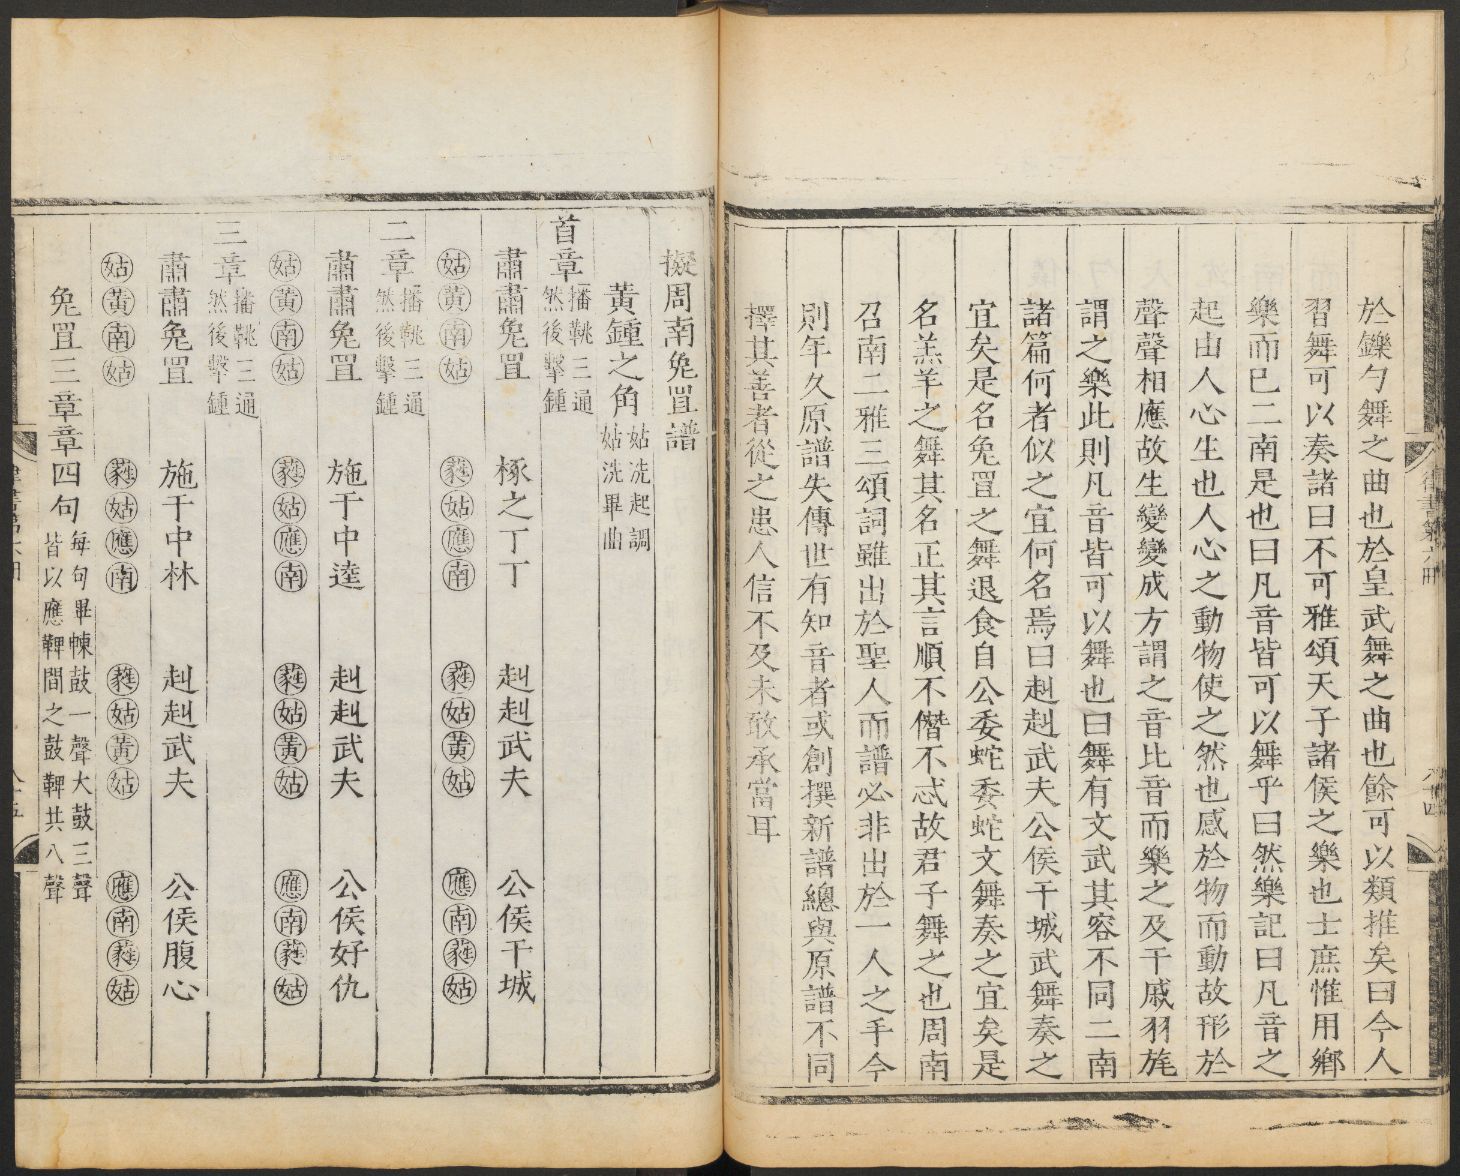 於鑠勺舞之曲也於皇武舞之曲也餘可以類推矣曰今人
習舞可以奏諸曰不可雅頌天子諸侯之樂也士庶惟用鄉
樂而巳二南是也曰凡音皆可以舞乎曰然樂記曰凡音之
起由人心生也人心之動物使之然也感於物而動故形於
聲聲相應故生變變成方謂之音比音而樂之及干戚羽旄
謂之樂此則凡音皆可以舞也曰舞有文武其容不同二南
諸篇何者似之宜何名焉曰赳赳武夫公侯干城武舞奏之
宜矣是名兔罝之舞退食自公委蛇委蛇文舞奏之宜矣是
名羔羊之舞其名正其言順不僭不忒故君子舞之也周南
召南二雅三頌詞雖出於聖人而譜必非出於一人之手今
則年久原譜失傳世有知音者或創撰新譜總與原譜不同
擇其善者從之患人信不及未敢承當耳
律書第六冊
八十四
擬周南兔罝譜
黃鍾之角姑洗起調
姑洗畢曲
首章播鞉三通
然後擊鍾
肅肅兔罝 椓之丁丁 赳赳武夫 公侯干城
姑黃南姑 蕤姑應南 蕤姑黃姑 應南蕤姑
二章播鞉三通
然後擊鍾
肅肅兔罝 施于中逵 赳赳武夫 公侯好仇
姑黃南姑 蕤姑應南 蕤姑黃姑 應南蕤姑
三章播鞉三通
然後擊鍾
肅肅兔罝 施于中林 赳赳武夫 公侯腹心
姑黃南姑 蕤姑應南 蕤姑黃姑 應南蕤姑
兔罝三章章四句每句畢㨂鼓一聲大鼓三聲
皆以應鞞間之鼓鞞共八聲